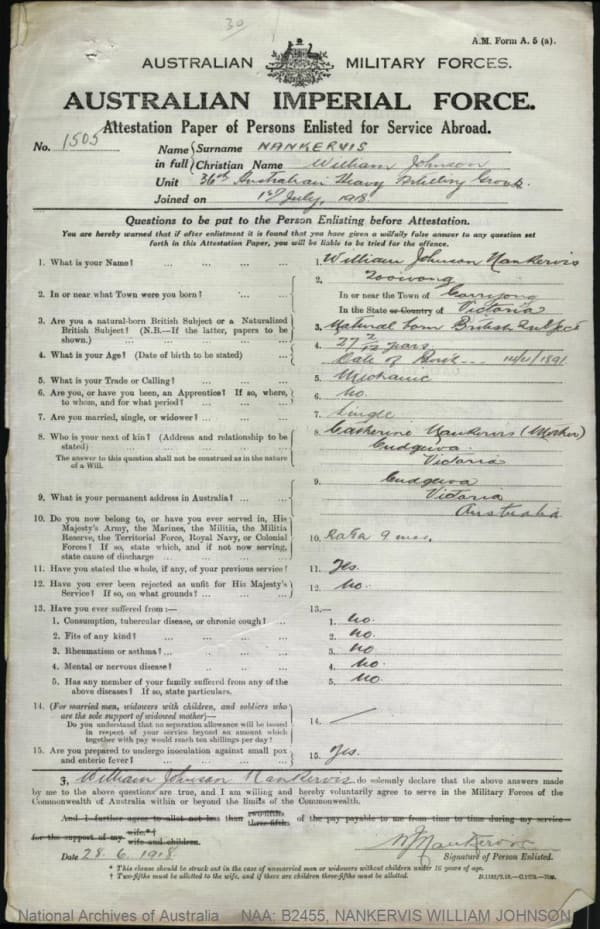 30
A.M. Form A. 5 (a).
AUSTRALIAN MILITARY FORCES.
AUSTRALIAN IMPERIAL FORCE.
Attestation Paper of Persons Enlisted for Service Abroad.
No. 1505
Name in full Surname NANKERVIS
Christian Name William Johnson
Unit 36th Australian Heavy Artillery Group
Joined on 1st July, 1918.
Questions to be put to the Person Enlisting before Attestation.
You are hereby warned that if after enlistment it is found that you have given a wilfully false answer to any question set
forth in this Attestation Paper, you will be liable to be tried for the offence.
1. What is your Name? ... ... ... ... 1. William Johnson Nankervis
2. In or near what Town were you born? ... ... 2.
In or near the Town of Corryong
In the State or Country of Victoria
3. Are you a natural-born British Subject or a Naturalized
British Subject? (N.B.—If the latter, papers to be
shown.) ... ... ... ... 3. Natural born British Subject
4. What is your Age? (Date of birth to be stated) ... 4. 27 years
Date of Birth
5. What is your Trade or Calling? ... ... ... 5. Mechanic
6. Are you, or have you been, an Apprentice? If so, where,
to whom, and for what period? ... ... ... 6. No.
7. Are you married, single, or widower? ... ... ... 7. Single
8. Who is your next of kin? (Address and relationship to be
stated) ... ... ... ... 8. Catherine Nankervis (Mother)
Cudgewa
Victoria
The answer to this question shall not be construed as in the nature
of a Will.
9. What is your permanent address in Australia? ... ... 9. Cudgewa
Victoria
Australia
10. Do you now belong to, or have you ever served in, His
Majesty's Army, the Marines, the Militia, the Militia
Reserve, the Territorial Force, Royal Navy, or Colonial
Forces? If so, state which, and if not now serving,
state cause of discharge ... ... ... 10. 9 mos.
11. Have you stated the whole, if any, of your previous service? 11. Yes.
12. Have you ever been rejected as unfit for His Majesty's
Service? If so, on what grounds? ... ... ... 12. No.
13. Have you ever suffered from:— 13.—
1. Consumption, tubercular disease, or chronic cough? ... 1. No.
2. Fits of any kind? ... ... ... ... 2. No.
3. Rheumatism or asthma? ... ... ... 3. No.
4. Mental or nervous disease? ... ... ... 4. No.
5. Has any member of your family suffered from any of the
above diseases? If so, state particulars. 5. No.
14. (For married men, widowers with children, and soldiers who
are the sole support of widowed mother)—
Do you understand that no separation allowance will be issued
in respect of your service beyond an amount which
together with pay would reach ten shillings per day? 14. —
15. Are you prepared to undergo inoculation against small pox
and enteric fever? ... ... ... ... 15. Yes.
I, William Johnson Nankervis do solemnly declare that the above answers made
by me to the above questions are true, and I am willing and hereby voluntarily agree to serve in the Military Forces of the
Commonwealth of Australia within or beyond the limits of the Commonwealth.
And I further agree to allot not less than two-fifths three-fifths of the pay payable to me from time to time during my service
for the support of my wife.*† wife and children.
Date 28.6.1918. WJNankervis
Signature of Person Enlisted.
* This clause should be struck out in the case of unmarried men or widowers without children under 16 years of age.
† Two-fifths must be allotted to the wife, and if there are children three-fifths must be allotted.
National Archives of Australia NAA: B2455, NANKERVIS WILLIAM JOHNSON